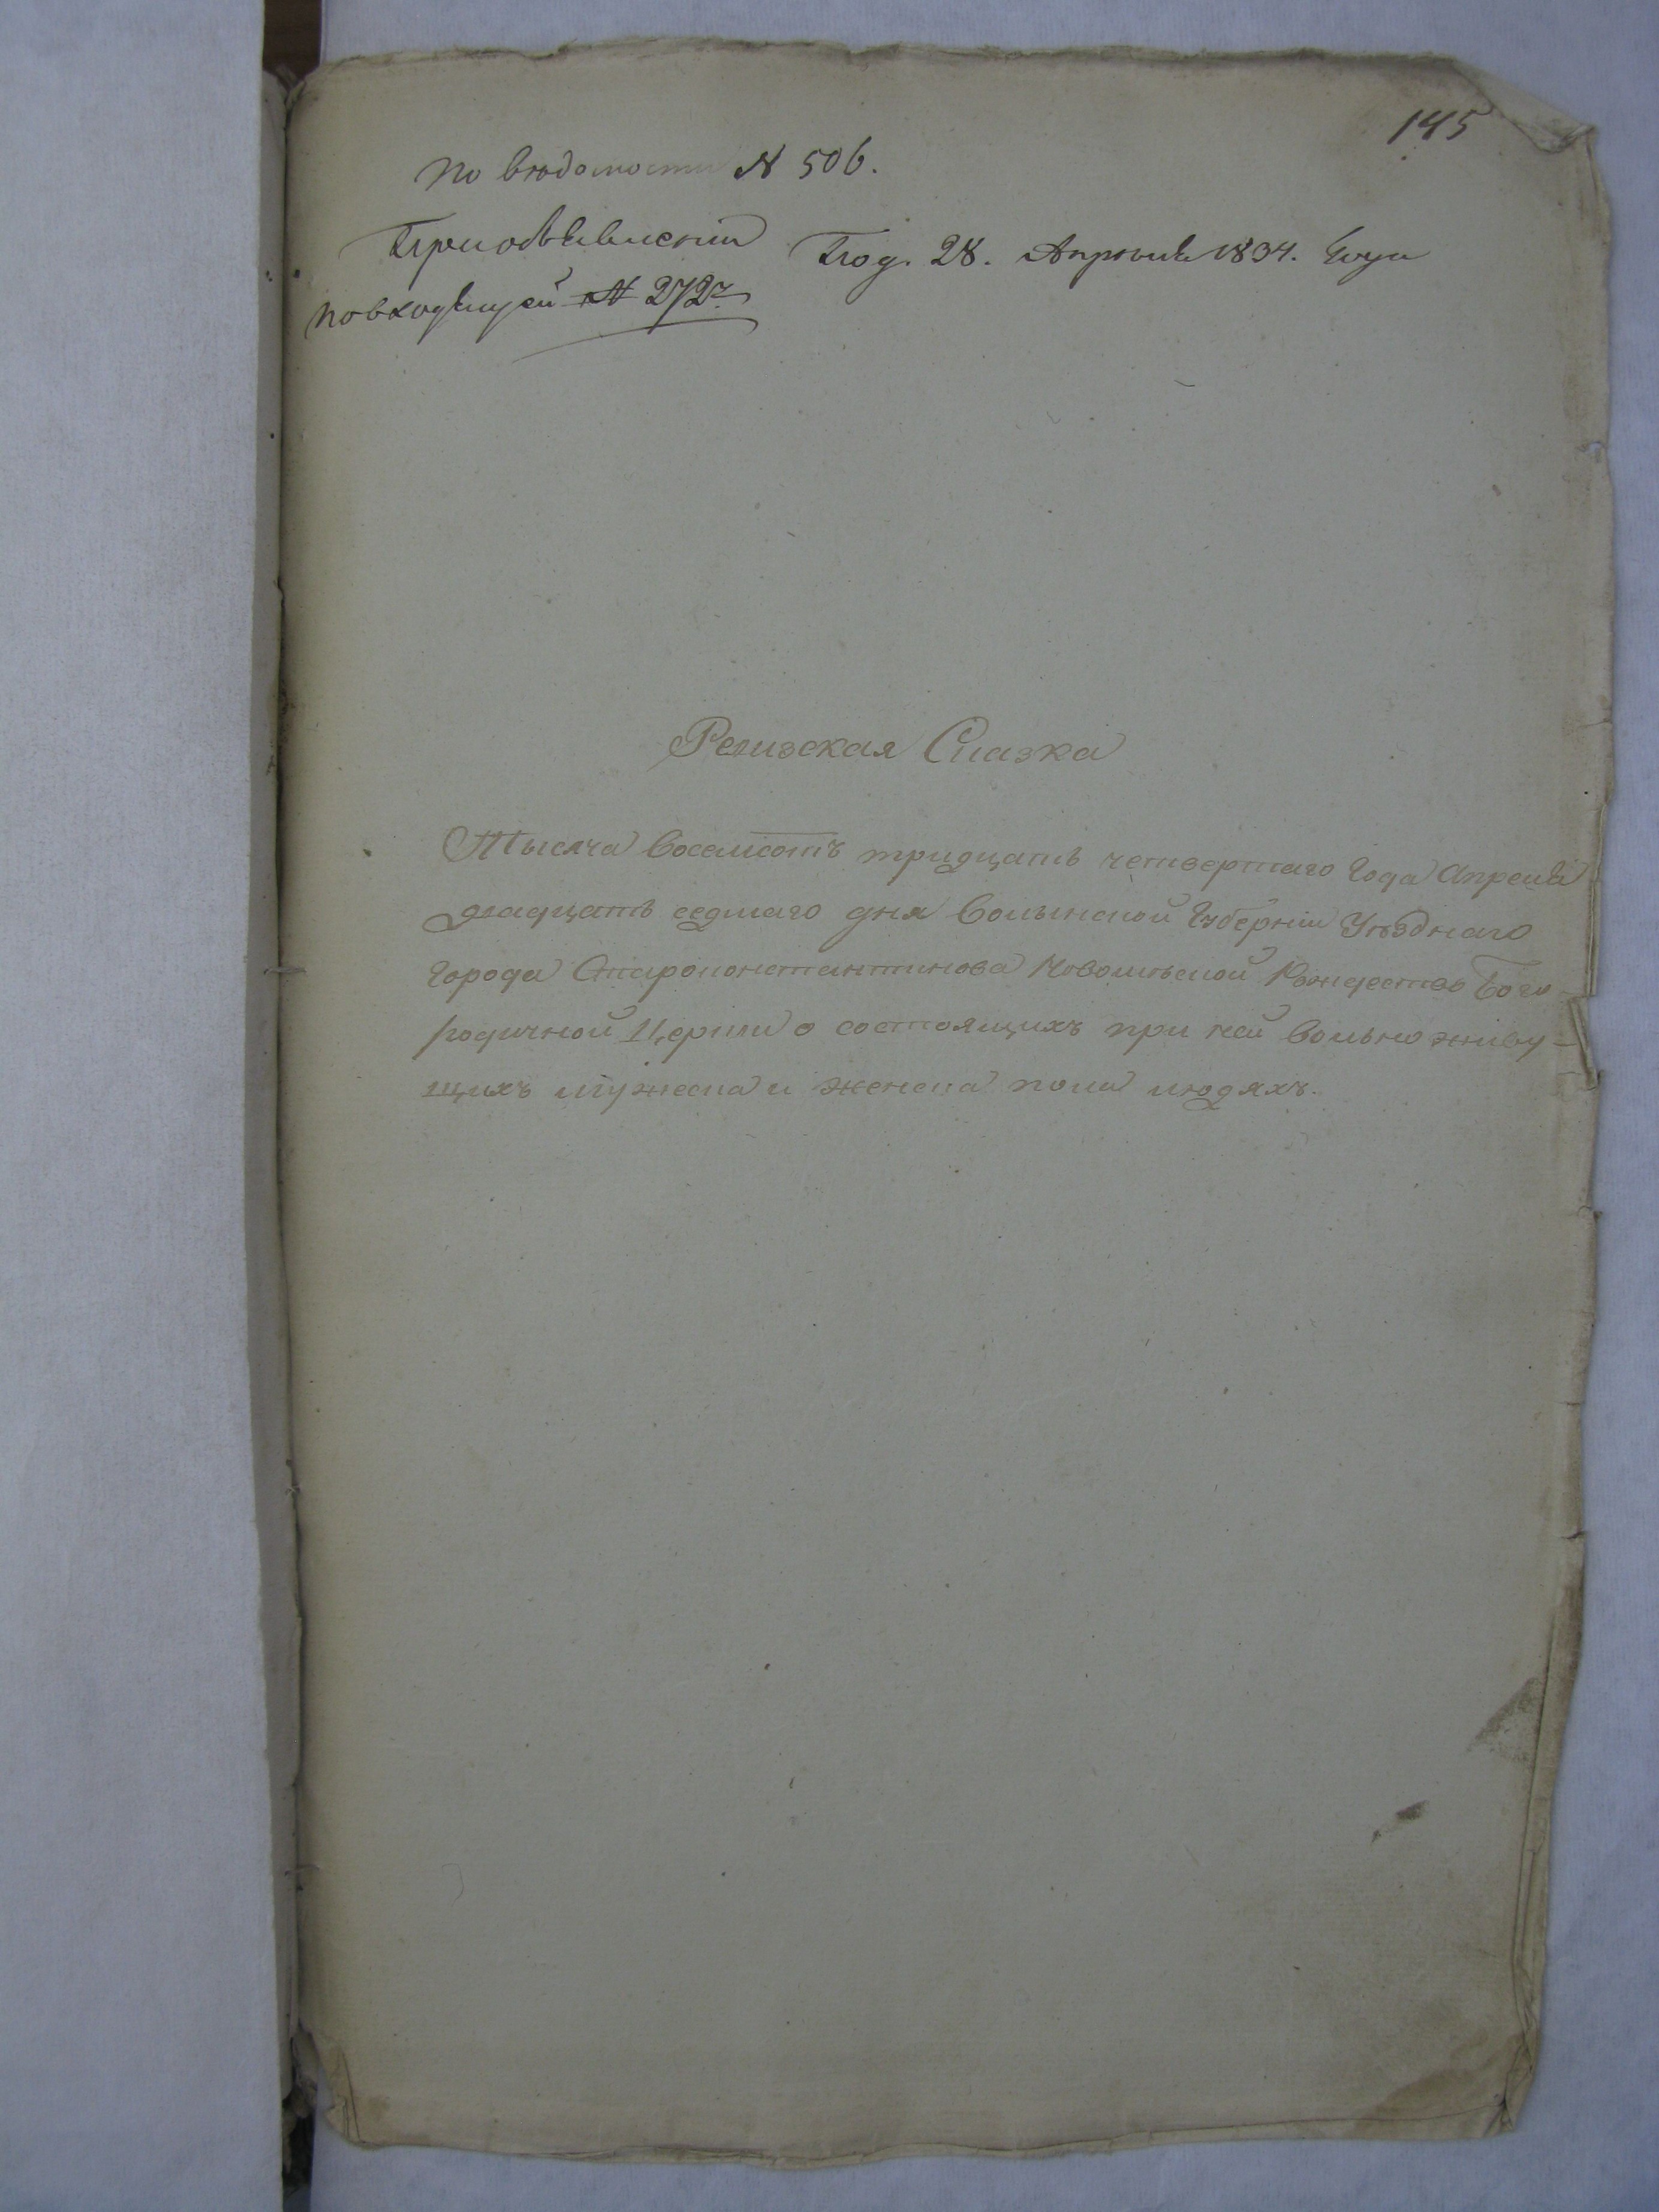 145
по вѣдомости № 506.
При объявленіи Под. 28. Апрѣля 1834. Года
по входящей № 272
Ревизская Сказка
Тысяча восемсотъ тридцать четвертаго Года Апреля
двадцать седмаго дня Волынской Губерніи Уѣзднаго
города Староконстантинова Новомѣской Рождество Бого-
родичной Церкви о состоящихъ при ней вольно живу-
щихъ мужеска и женска пола людяхъ.